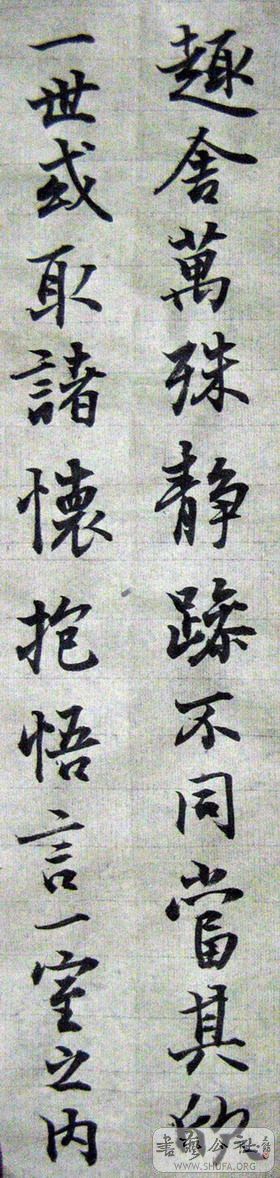 趣舍萬殊静躁不同當其欣
一世或取諸懷抱悟言一室之内
書藝公社
WWW.SHUFA.ORG